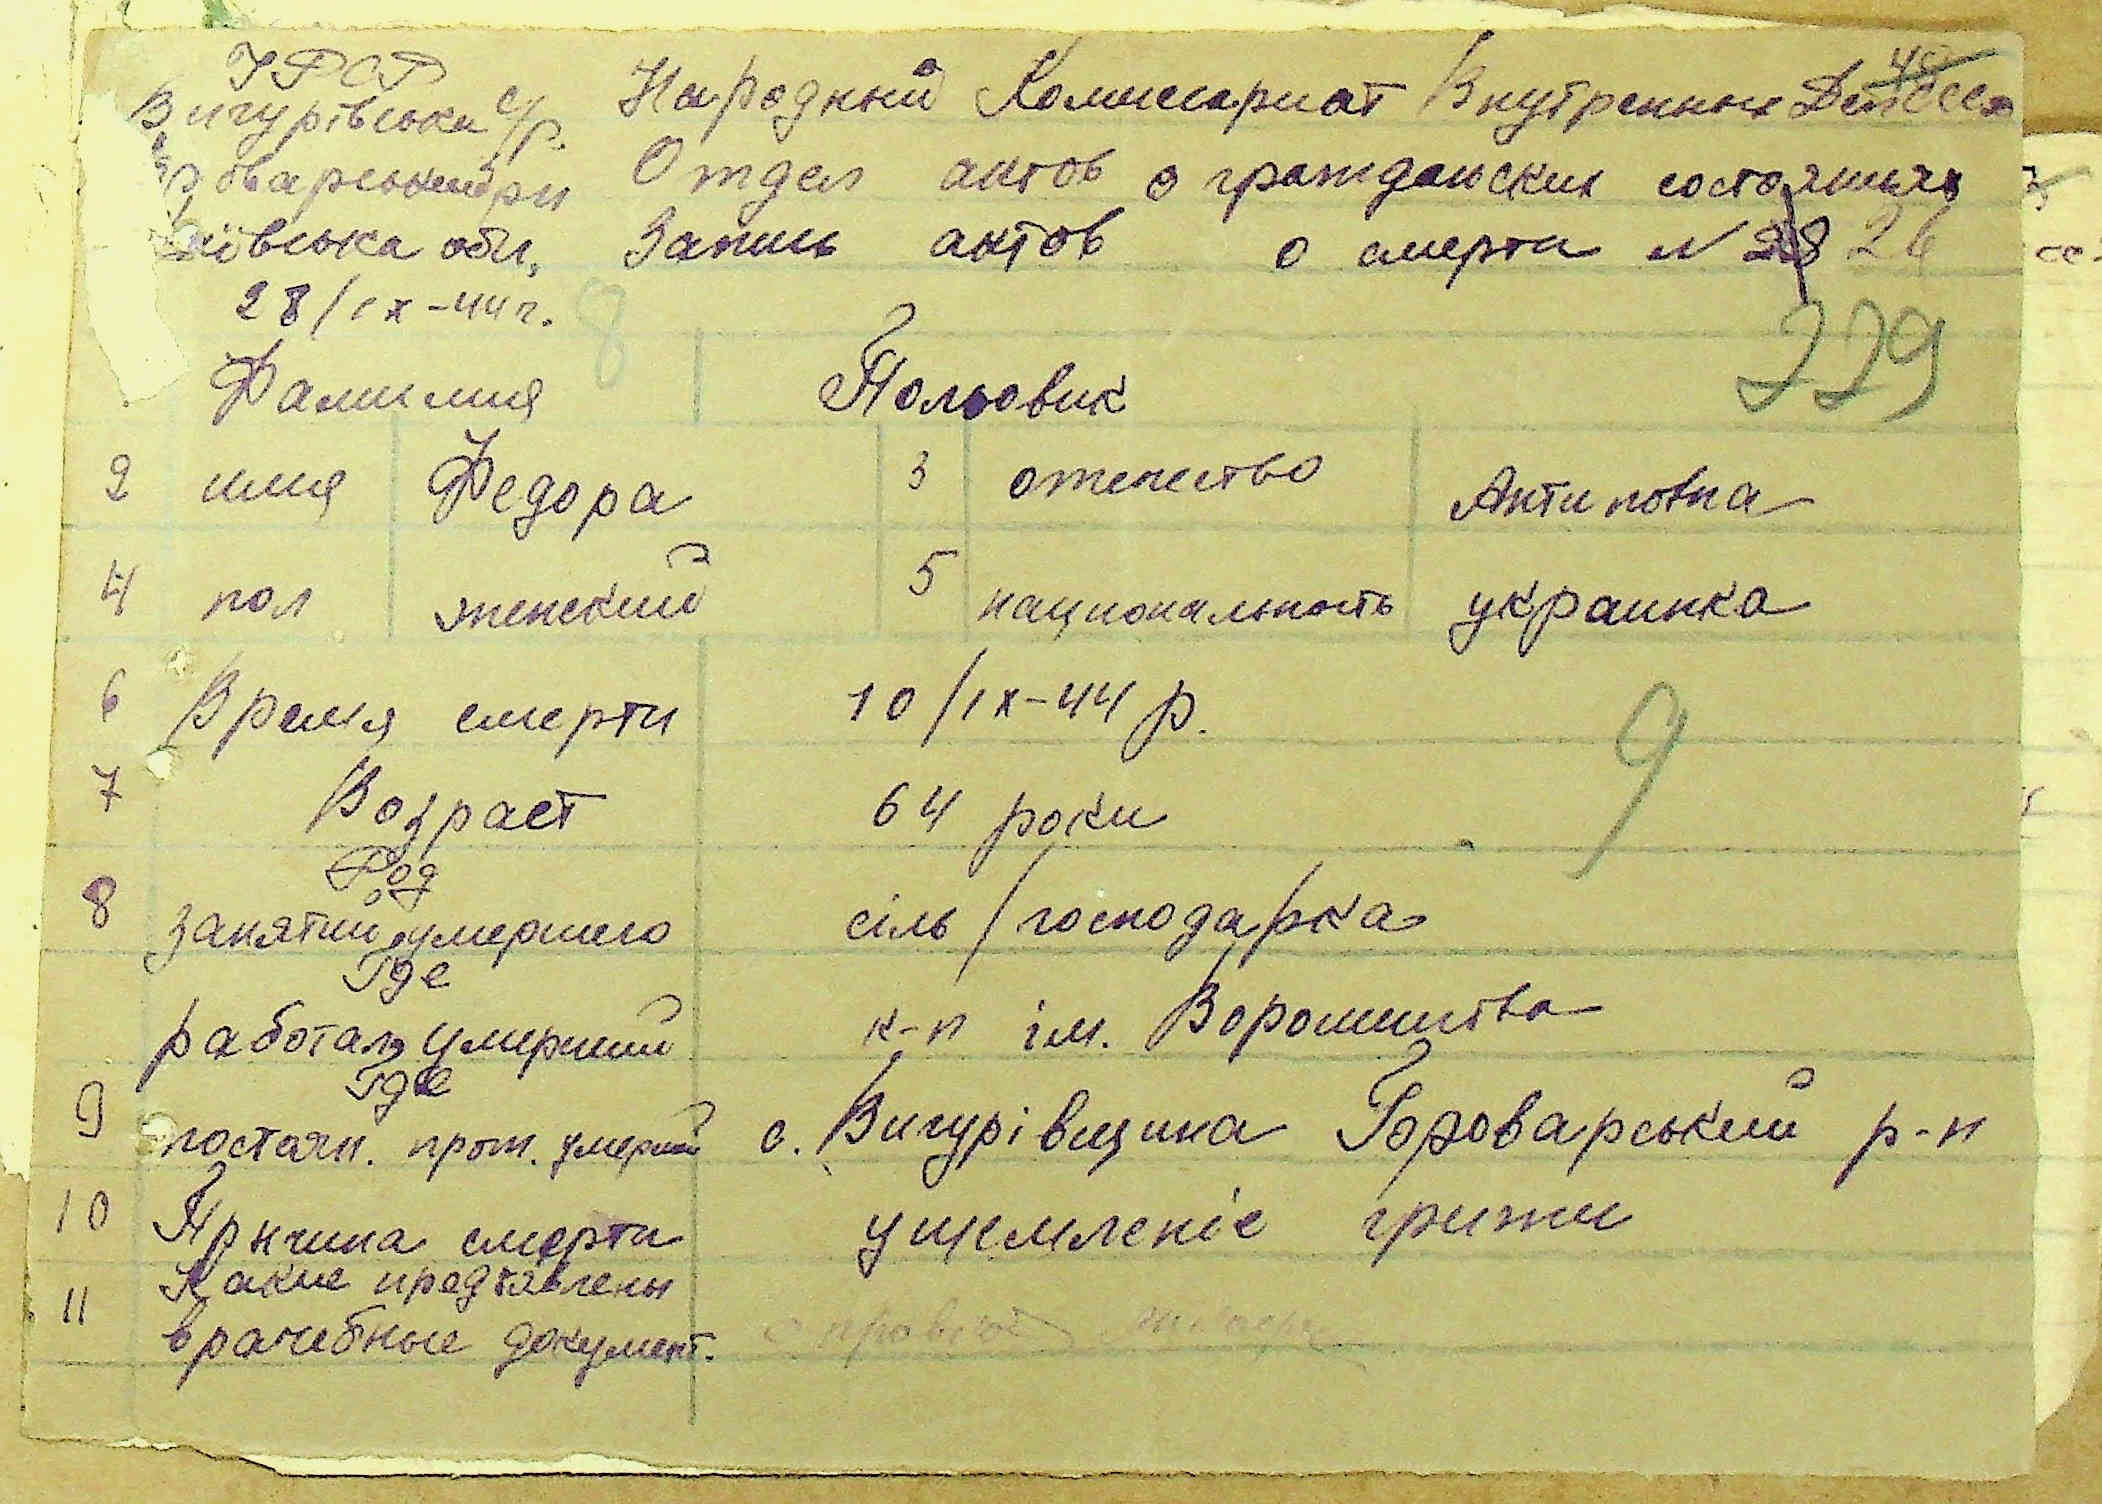 УРСР
Вигурівська с/р. Народный Комиссариат Внутренних Дел СССР
40
Броварський р-н Отдел актов о гражданских состояниях
Київська обл. Запись актов о смерти N 28 26
28/ІХ-44 г. 8
229
Фамилия Польовик
2 имя Федора 3 отчество Антиповна
4 пол женский 5 национальность украинка
6 Время смерти 10/ІХ-44 р.
9
7 Возраст 64 роки
8 Род
занятий умершего сіль/господарка
Где
работал умерший к-п ім. Ворошилова
9 Где
постоян. прож. умерший с. Вигурівщина Броварський р-н
10 Причина смерти ущемленіе грижи
11 Какие предъявлены
врачебные документ.